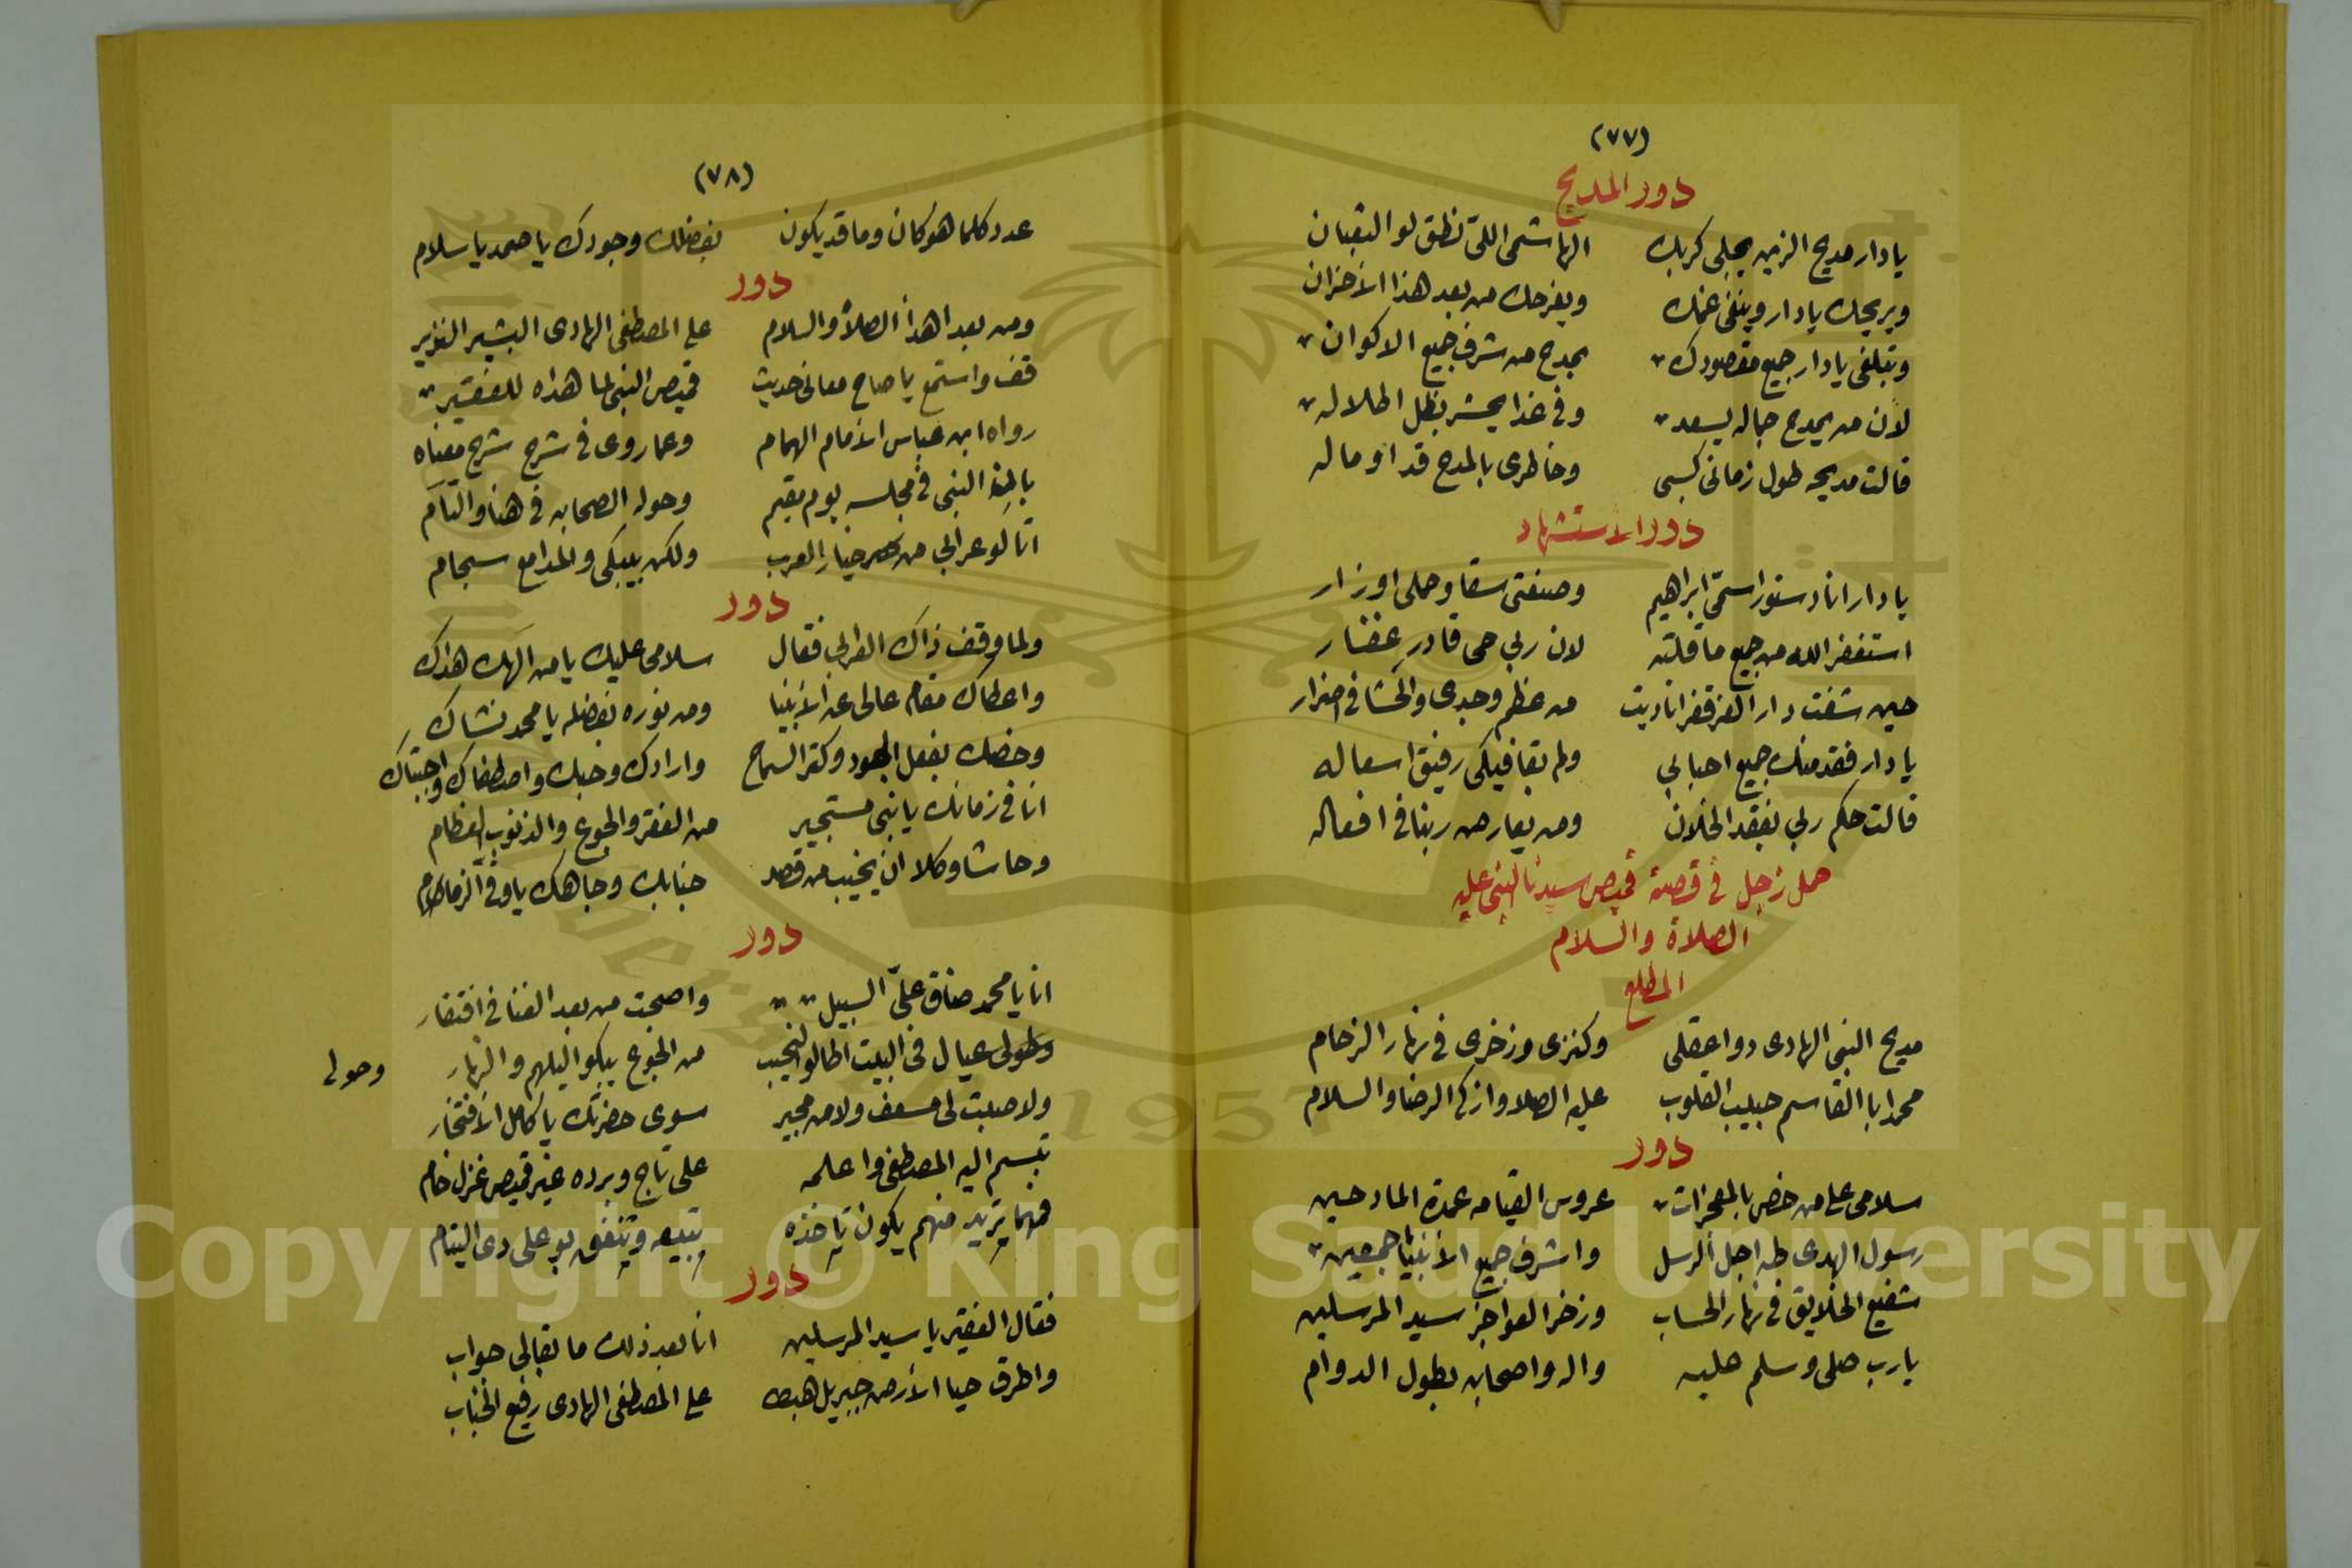 (٧٧)
دور المديح
يا دار مديح الزين يجلى كربك الهاشمى اللى نطق لو الثعبان
ويريحك يا دار وينفى غمك ويفرحك من بعد هذا الاحزان
وتبلغى يا دار جميع مقصودك بمدح من شرف جميع الاكوان
لان من يمدح جماله يسعد وفى غدا يحشر بظل اظلاله
قالت مديحه طول زمانى كسبى وخاطرى بالمدح قد اوماله
دور الاستشهاد
يا دار انا دستور اسمى ابراهيم وصنعتى سقا وحملى اوزار
استغفر الله من جميع ما قلته لان ربى حى قادر غفار
حين شفت دار العز قفرا ناديت من عظم وجدى والحشا فى اضرار
يا دار فقد منك جميع احبابى ولم بقا فيكى رفيق اسعاله
قالت حكم ربى بفقد الخلان ومن يعارض ربنا فى افعاله
حمل زجل فى قصة قميص سيدنا النبى عليه
الصلاة والسلام
المطلع
مديح النبى الهادى دوا عقلى وكنزى وزخرى فى نهار الزحام
محمد ابا القاسم حبيب القلوب عليه الصلا وازكى الرضا والسلام
دور
سلامى على من خص بالمعجزات عروس القيامه عمدة المادحين
رسول الهدى طه اجل الرسل واشرف جميع الانبيا اجمعين
شفيع الخلايق فى نهار الحساب وزخر العواجز سيد المرسلين
يارب صلى وسلم عليه واله واصحابه بطول الدوام
(٧٨)
عدد كلما هو كان وما قد يكون بفضلك وجودك يا صمد يا سلام
دور
ومن بعد اهدا الصلا والسلام على المصطفى الهادى البشير النذير
قف واستمع يا صاح معانى حديث قميص النبى لما هداه للفقير
رواه ابن عباس الامام الهمام وعما روى فى شرح شرح معناه
بالمنا النبى فى مجلسه يوم مقيم وحوله الصحابه فى هنا والتام
اتا لو عرابى من خيار العرب ولكن بيبكى والمدامع سجام
دور
ولما وقف ذاك العرابى فقال سلامى عليك يا من الهك هداك
واعطاك مقام عالى عن الانبيا ومن نوره بفضله يا محمد نشاك
وخصك بفعل الجود وكتر السماح وارادك وحبك واصطفاك واجتباك
انا فى زمانك يا نبى مستجير من الفقر والجوع والذنوب العظام
وحاشا وكلا ان يخيب من قصد جنابك وجاهك يا وفى الزمام
دور
انا يا محمد ضاق على السبيل واصبحت من بعد الغنا فى افتقار
وحولى عيال فى البيت اطالوا النحيب من الجوع يبكوا ليلهم والنهار وحولى
ولا صبت لى مسعف ولا من مجير سوى حضرتك يا كامل الافتخار
تبسم اليه المصطفى واعلمه على تاج وبرده غير قميص غزل خام
فمهما تريد منهم يكون تاخذه تبيعه وتنفق بو على دى اليتام
دور
فقال الفقير يا سيد المرسلين انا بعد ذلك ما بقالى جواب
واطرق حيا الارض جبريل هبط على المصطفى الهادى رفيع الجناب
Copyright © King Saud University
1957